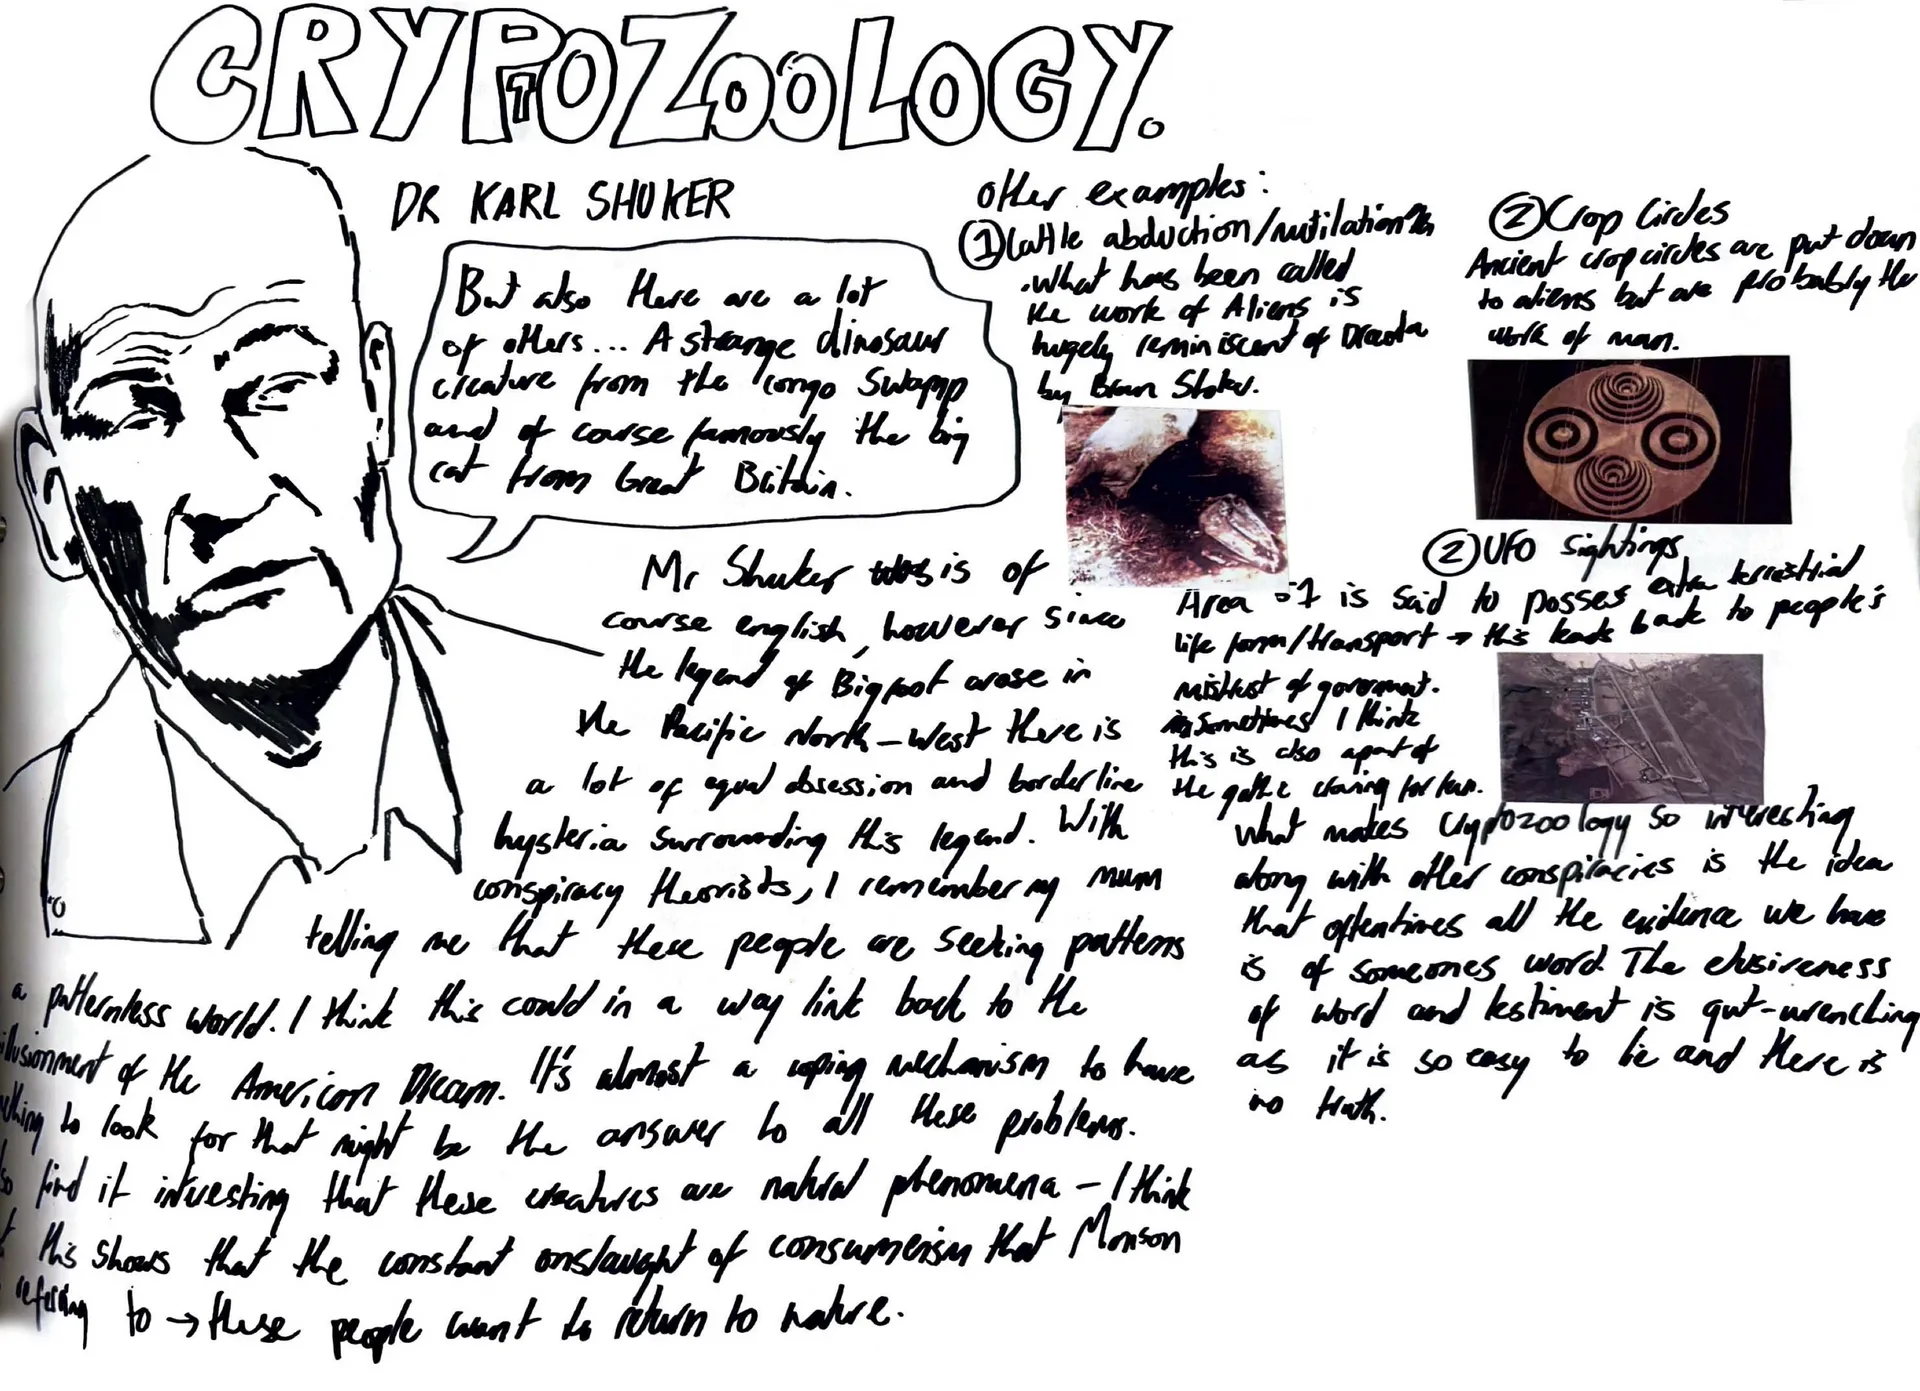 CRYPTOZOOLOGY.
DR KARL SHUKER
But also there are a lot
of others... A strange dinosaur
creature from the congo swapmp
and of course famously the big
cat from Great Britain.
Mr Shuker was is of
course english, however since
the legend of Bigfoot arose in
the Pacific North-West there is
a lot of equal obsession and borderline
hysteria surrounding this legend. With
conspiracy theorists, I remember my mum
telling me that these people are seeking patterns
a patternless world. I think this could in a way link back to the
illusionment of the American Dream. It's almost a coping mechanism to have
to look for that might be the answer to all these problems.
find it interesting that these creatures are natural phenomena - I think
this shows that the constant onslaught of consumerism that Monson
referring to → these people want to return to nature.
other examples:
① Cattle abduction/mutilation
. What has been called
the work of Aliens is
hugely reminiscent of Dracula
by Bram Stoker.
② Crop Circles
Ancient crop circles are put down
to aliens but are probably the
work of man.
② UFO sightings
Area 51 is said to posses extra terrestrial
life form/transport → this leads back to people's
mistrust of government.
sometimes I think
this is also apart of
the gothic craving for fear.
What makes cryptozoology so interesting
along with other conspiracies is the idea
that oftentimes all the evidence we have
is of someones word. The elusiveness
of word and testiment is gut-wrenching
as it is so easy to lie and there is
no truth.